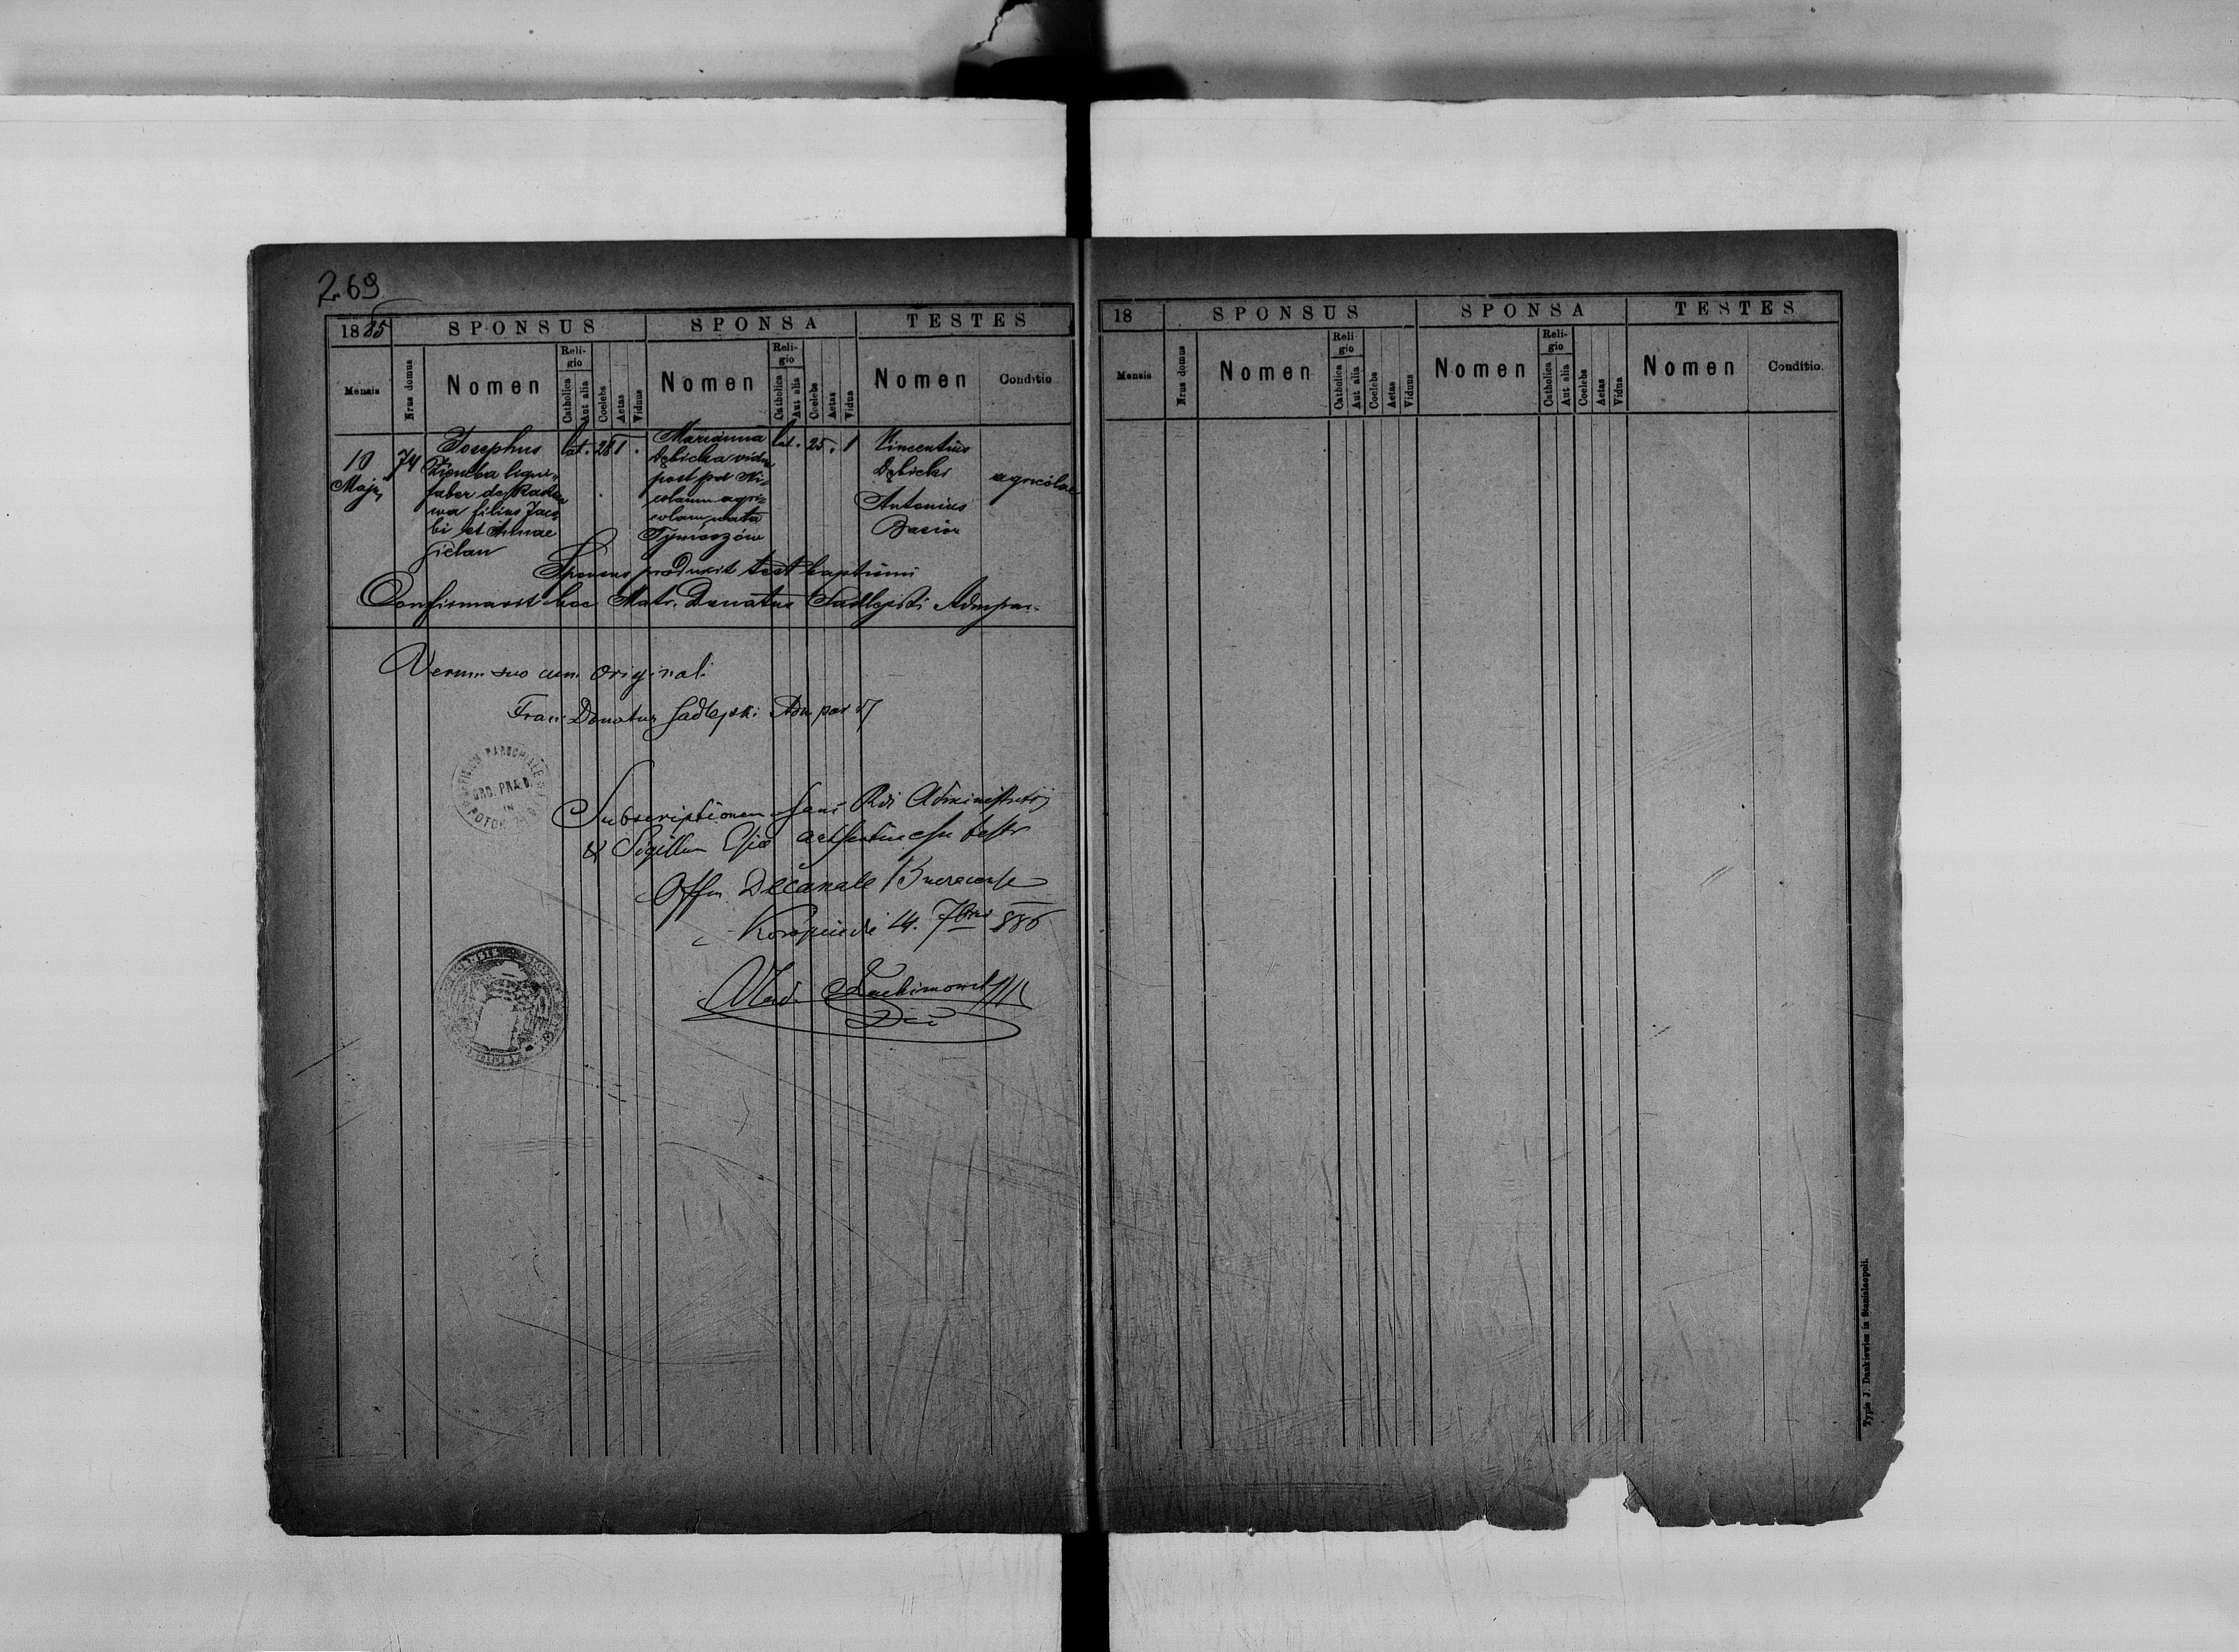 269
1885
SPONSUS
SPONSA
TESTES
Mensis
Nrus domus
Nomen
Religio
Catholica
Aut alia
Coelebs
Aetas
Viduus
Nomen
Religio
Catholica
Aut alia
Coelebs
Aetas
Vidua
Nomen
Conditio
10
Maji
74
Josephus
Ziemba ligni
faber de
filius Jaco
bi et Annae
Gielan
lat. 28 1 .
Marianna
Dębicka vidua
post Ni
colaum agri
colam nata
Tymoszów
lat. 25. 1
Vincentius
Dębicki
Antonius
Basior
agricolae
Sponsus produxit test baptismi
Confirmavit hoc Matr. Donatus Sadlejski Adm par.
Verum cum originali
Donatus Sadlejski Adm par
OFFICIUM PAROCHIALE
ORD. PRÆD.
IN
POTOK
Subscriptionem Rdi Administratoris
et Sigillum esse testr
Offm Decanale Buczacense
14. 7bris 886
Vlad.
Dec
18
SPONSUS
SPONSA
TESTES
Mensis
Nrus domus
Nomen
Religio
Catholica
Aut alia
Coelebs
Aetas
Viduus
Nomen
Religio
Catholica
Aut alia
Coelebs
Aetas
Vidua
Nomen
Conditio.
Typis J. Dankiewicz in Stanislaopoli.